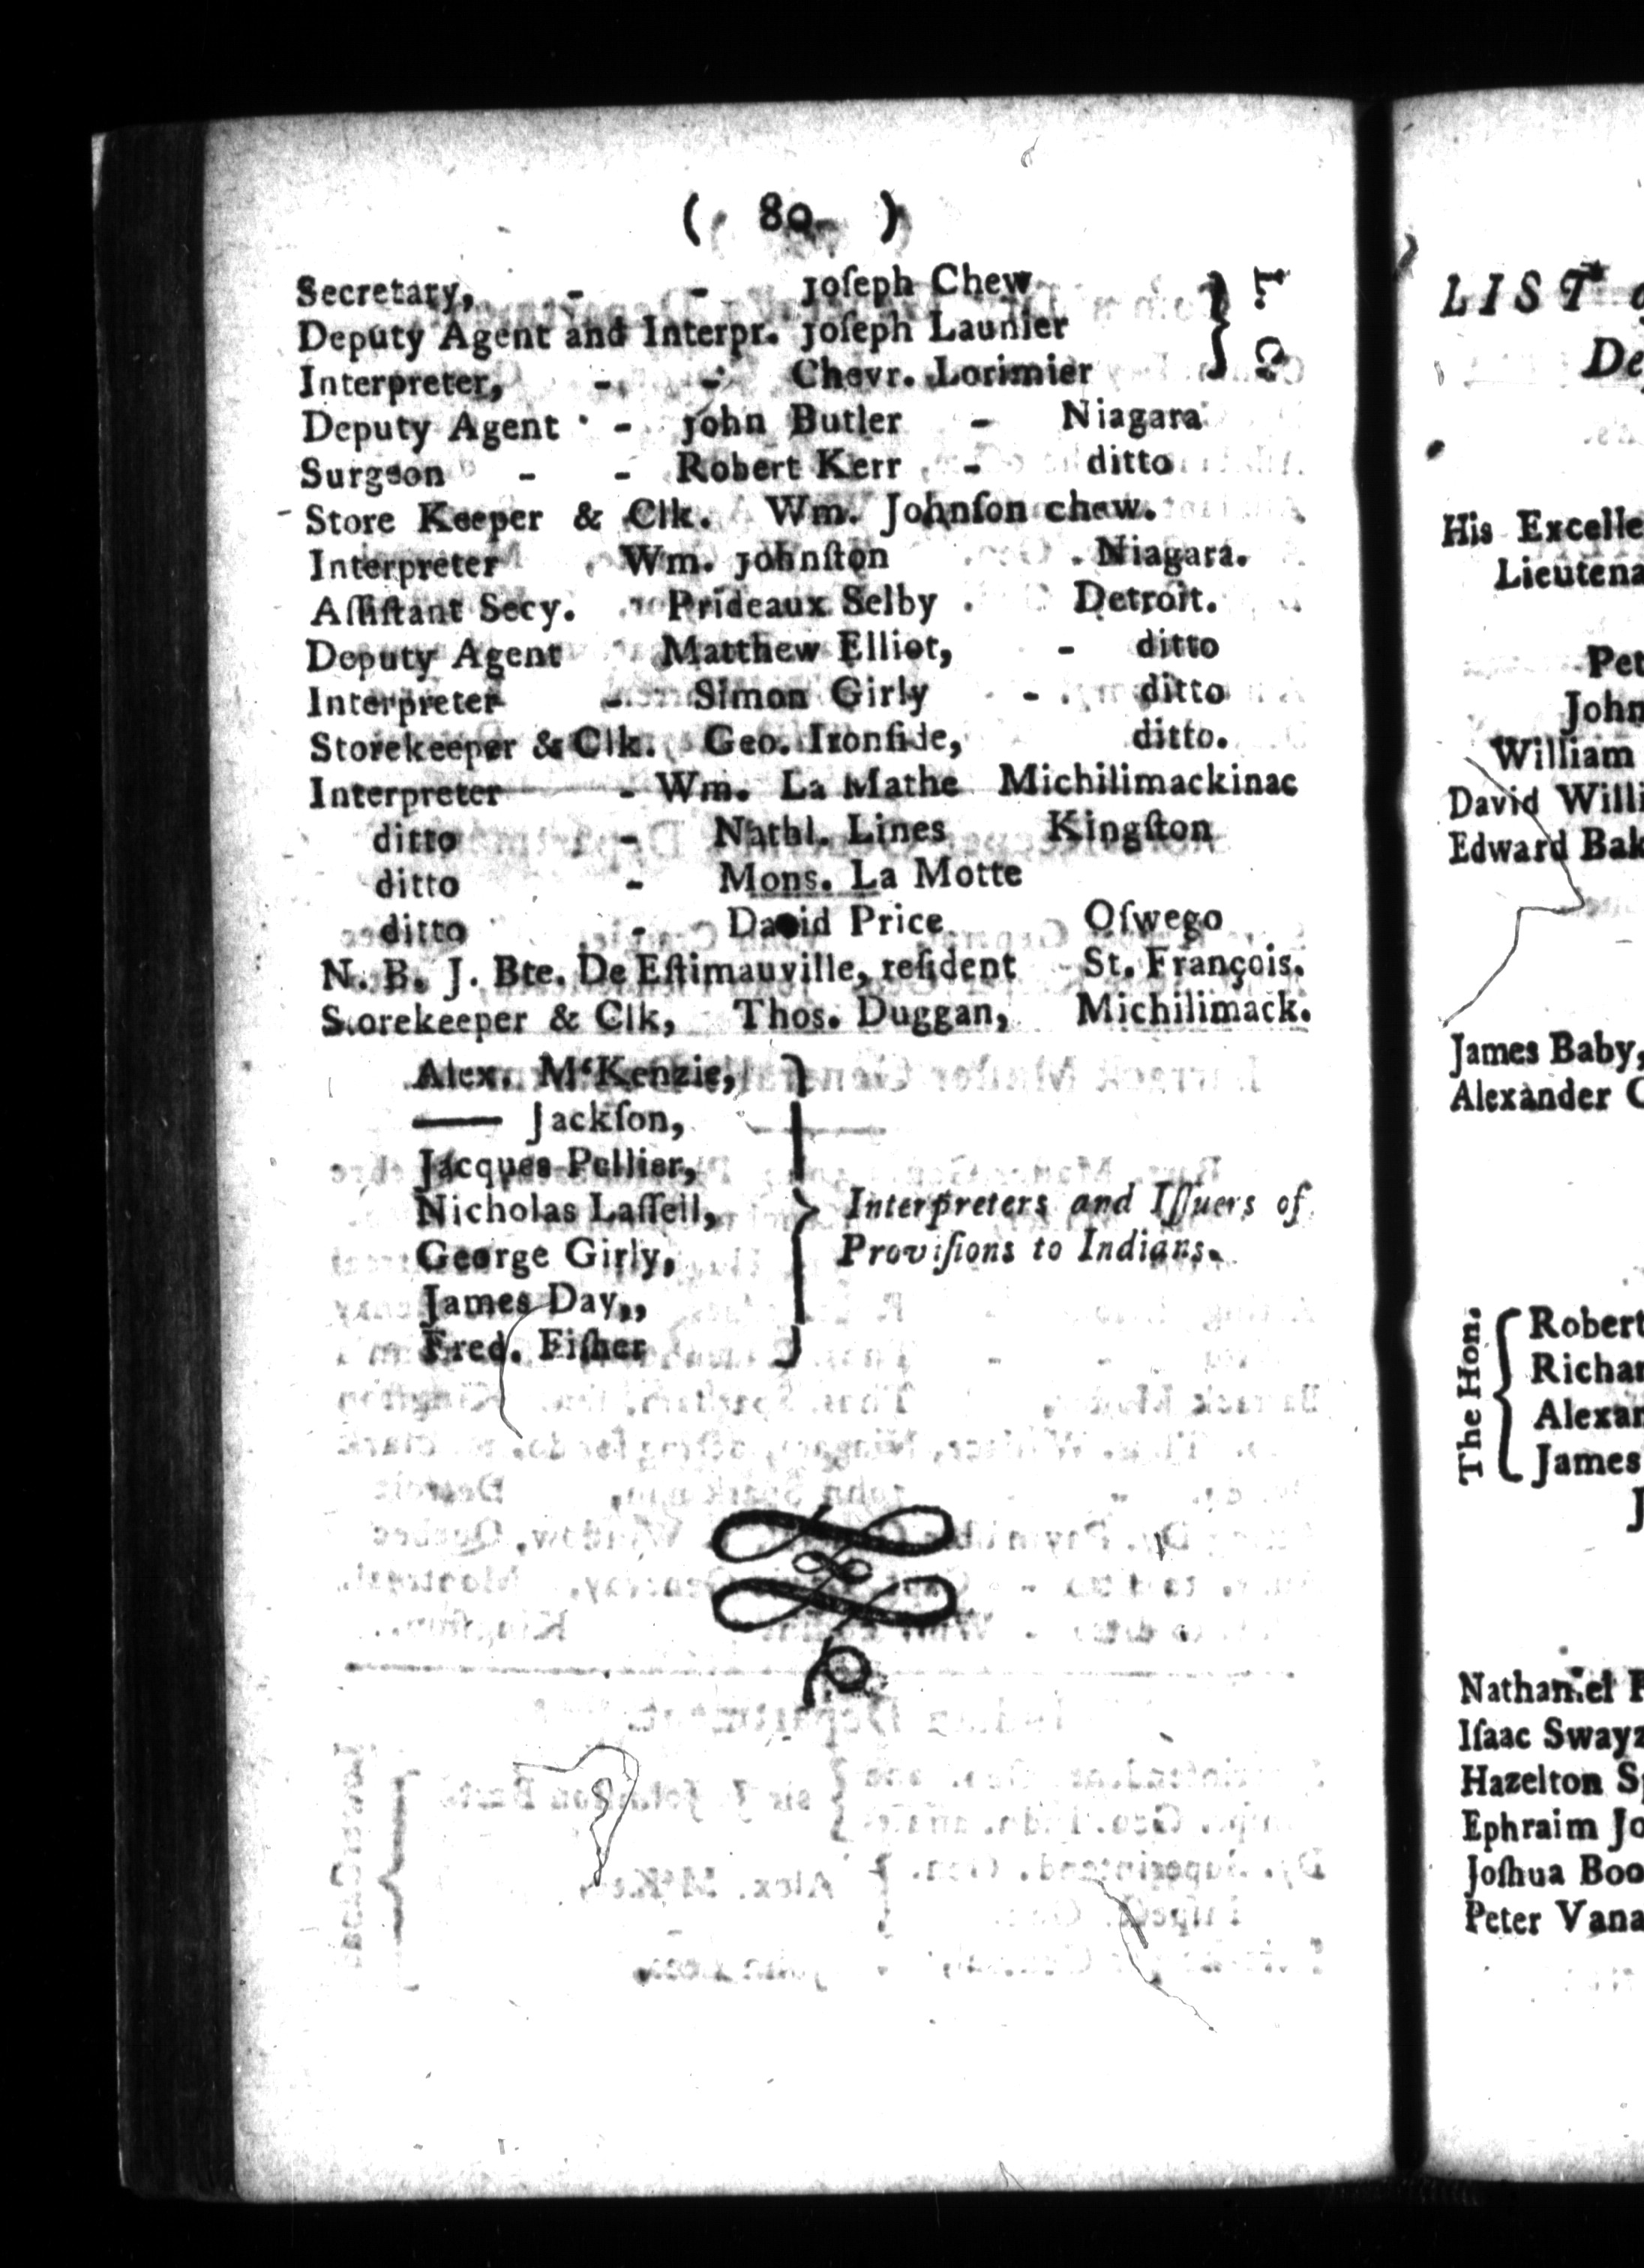 ( 80 )
Secretary, - - Joſeph Chew
Deputy Agent and Interpr. Joſeph Launier
Interpreter, - - Chevr. Lorimier
L. C.
Deputy Agent - John Butler - Niagara
Surgeon - - Robert Kerr - ditto
Store Keeper & Clk. Wm. Johnſon chew.
Interpreter Wm. Johnſton Niagara.
Aſſiſtant Secy. Prideaux Selby Detroit.
Deputy Agent Matthew Elliot, - ditto
Interpreter - Simon Girly - ditto
Storekeeper & Clk. Geo. Ironſide, ditto.
Interpreter - Wm. La Mathe Michilimackinac
ditto - Nathl. Lines Kingſton
ditto - Mons. La Motte
ditto - David Price Oſwego
N. B. J. Bte. De Eſtimauville, reſident St. François.
Storekeeper & Clk, Thos. Duggan, Michilimack.
Alex. McKenzie,
—— Jackſon,
Jacques Pellier,
Nicholas Laſſell,
George Girly,
James Day,,
Fred. Fiſher
Interpreters and Iſſuers of
Proviſions to Indians.
LIST
His Excelle
Lieutena
Pet
John
William
David Willi
Edward Bak
James Baby,
Alexander C
The Hon.
Robert
Richar
Alexan
James
J
Nathaniel
Iſaac Sway
Hazelton S
Ephraim Jo
Joſhua Boo
Peter Vana